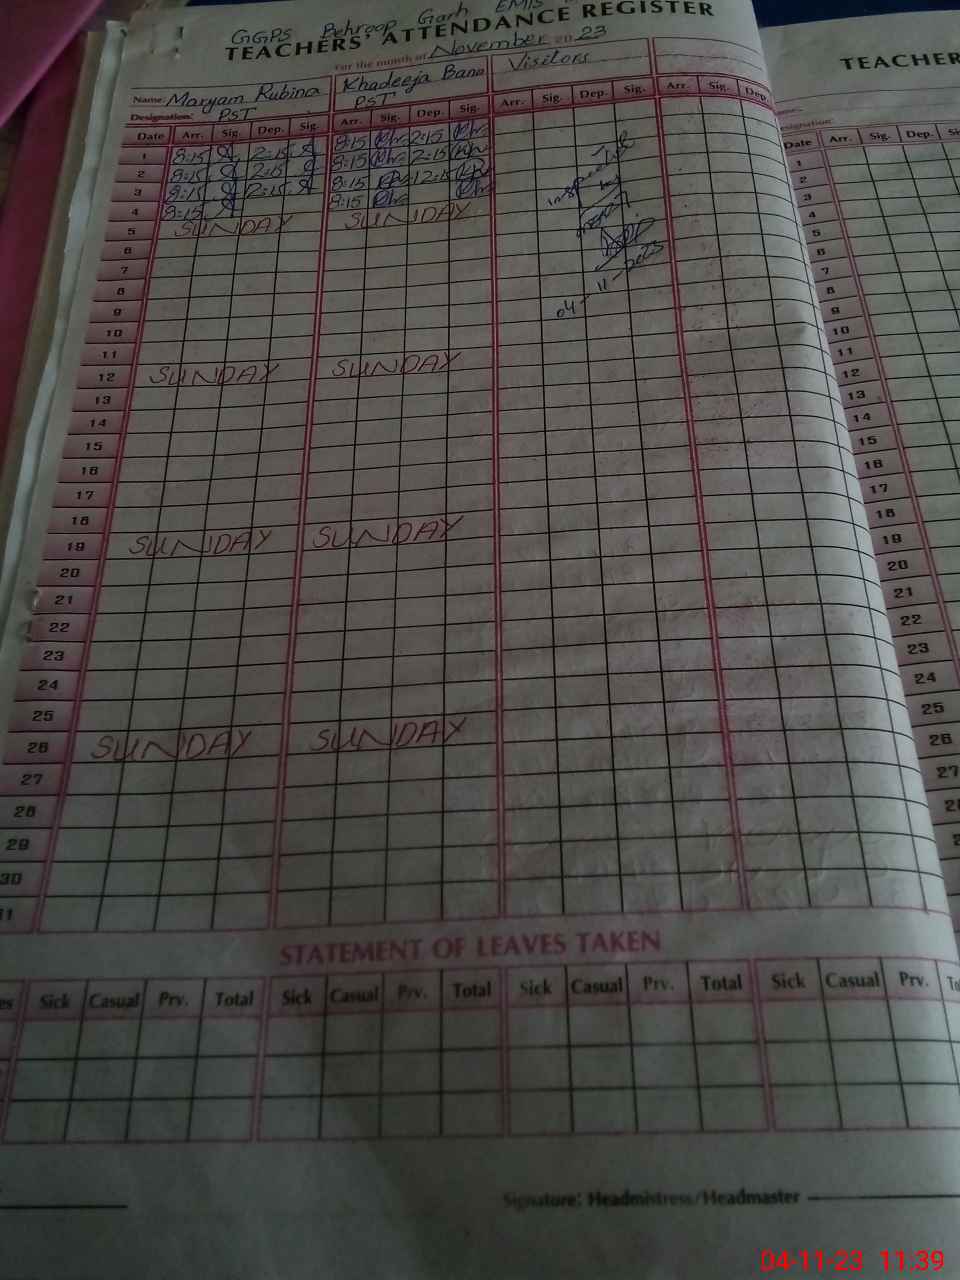 GGPS Behroop Garh EMIS
TEACHERS' ATTENDANCE REGISTER
For the month of November 2023
Name: Maryam Rubina Khadeeja Bano Visitors
Designation: PST PST
Date Arr. Sig. Dep. Sig. Arr. Sig. Dep. Sig. Arr. Sig. Dep. Sig. Arr. Sig. Dep.
1 8:15 2:15 8:15 2:15
2 8:15 2:15 8:15 2:15
3 8:15 2:15 8:15 12:15
4 8:15 8:15
5 SUNDAY SUNDAY
6
7
8
9
10
11
12 SUNDAY SUNDAY
13
14
15
16
17
18
19 SUNDAY SUNDAY
20
21
22
23
24
25
26 SUNDAY SUNDAY
27
28
29
30
04-11-2023
STATEMENT OF LEAVES TAKEN
Sick Casual Prv. Total Sick Casual Prv. Total Sick Casual Prv. Total Sick Casual Prv.
Signature: Headmistress/Headmaster
TEACHER
Date Arr. Sig. Dep. Sig.
1
2
3
4
5
6
7
8
9
10
11
12
13
14
15
16
17
18
19
20
21
22
23
24
25
26
27
04-11-23 11:39